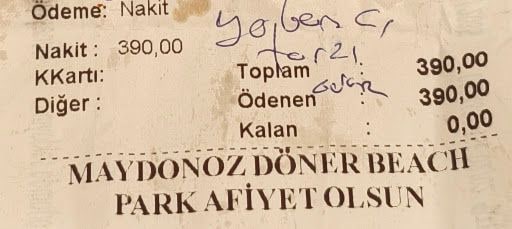 Ödeme: Nakit
Nakit : 390,00
KKartı:
Diğer :
Toplam : 390,00
Ödenen : 390,00
Kalan : 0,00
MAYDONOZ DÖNER BEACH
PARK AFİYET OLSUN